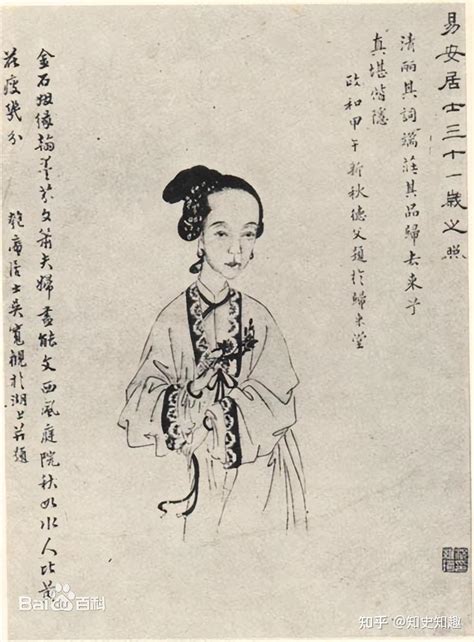 易安居士三十一歲之照
清麗其詞端莊其品歸去來兮
真堪偕隱
政和甲午新秋德父題於歸來堂
金石姻緣翰墨芬文簫夫婦盡能文西風庭院秋如水人比黃
花瘦幾分
匏庵居士吳寬觀於湖上並題
Bai du 百科
知乎 @知史知趣